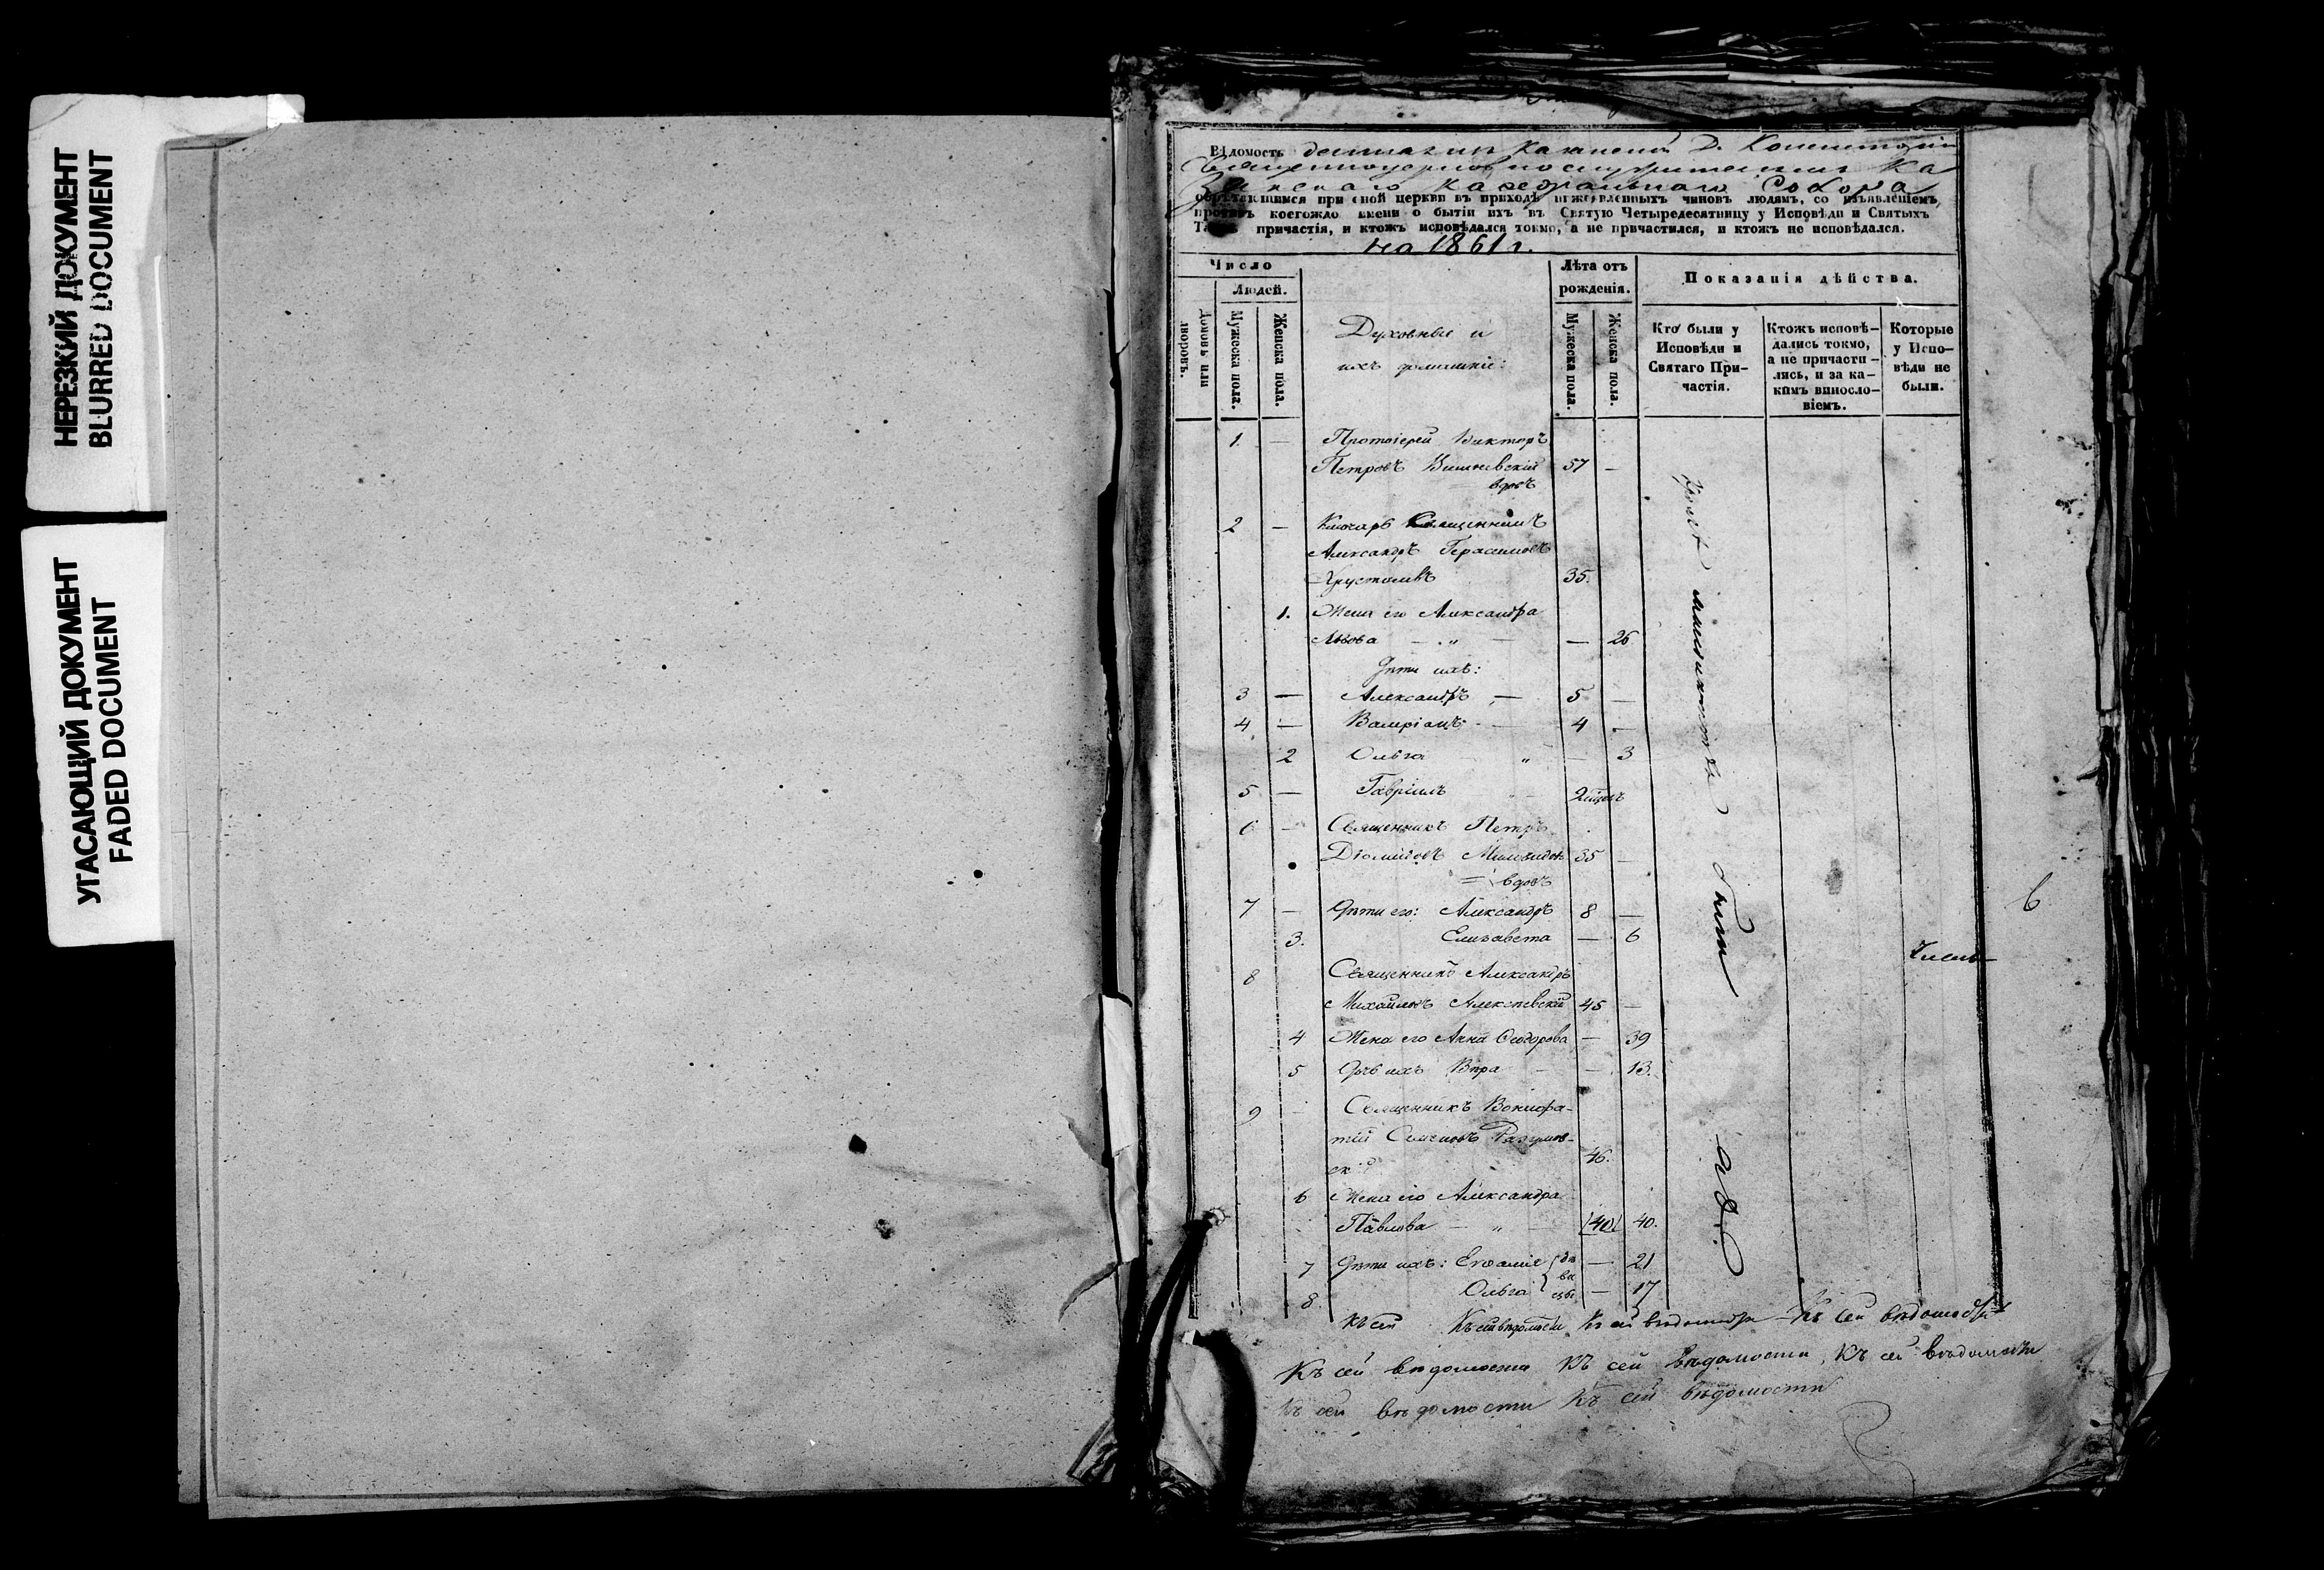 НЕРЕЗКИЙ ДОКУМЕНТ
BLURRED DOCUMENT
УГАСАЮЩИЙ ДОКУМЕНТ
FADED DOCUMENT
Вѣдомость Казанской Д. Консисторіи
Ка
занскаго Каѳедральнаго Собора
обрѣтающимся при оной церкви въ приходѣ нижеявленныхъ чиновъ людямъ, со изъявленіемъ,
противъ коегождо имени о бытіи ихъ въ Святую Четыредесятницу у Исповѣди и Святыхъ
Таинъ причастія, и ктожъ исповѣдался токмо, а не причастился, и ктожъ не исповѣдался.
на 1861 г.
Число
Людей.
Домовъ или дворовъ.
Мужеска пола.
Женска пола.
Духовные и
ихъ домашніе:
Лѣта отъ
рожденія.
Мужеска пола.
Женска пола.
Показанія дѣйства.
Кто были у
Исповѣди и
Святаго При-
частія.
Ктожъ исповѣ-
дались токмо,
а не причасти-
лись, и за ка-
кимъ винosло-
віемъ.
Которые
у Испо-
вѣди не
были.
1. — Протоіерей Викторъ
Петровъ Вишневскій 57 —
вдовъ
2 — Ключарь Священникъ
Александръ Герасимовъ
Хрусталевъ 35.
1. Жена его Александра
Львова — „ — — 26
Дѣти ихъ:
3 — Александръ — 5 —
4 — Валеріанъ — 4 —
2 Ольга „ — 3
5 — Гавріилъ
6 — Священникъ Петръ
Діомидовъ 35 —
= вдовъ
7 — Дѣти его: Александръ 8 —
3. Елизавета — 6
8 Священникъ Александръ
Михайловъ Алексѣевскій 45 —
4 Жена его Анна Ѳеодорова — 39
5 Дочь ихъ Вѣра — — 13.
9 — Священникъ Вонифа-
тій Семеновъ Разумов-
скій 46.
6 Жена его Александра
Павлова — „ — (40) 40.
7 Дѣти ихъ: Евѳалія — 21
8 Ольга — 17
дѣ
ви
цы
были
6
Къ сей Къ сей вѣдомости Къ сей вѣдомости Къ сей вѣдомости
Къ сей вѣдомости Къ сей вѣдомости, Къ сей вѣдомости
Къ сей вѣдомости Къ сей вѣдомости